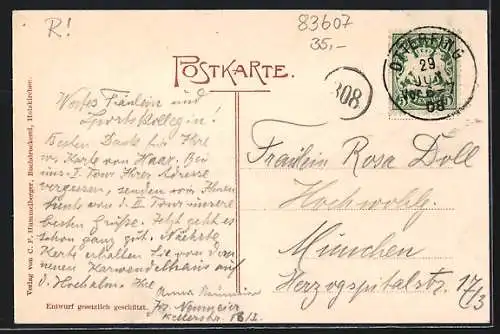 R!
83607
35,-
POSTKARTE.
OTTERFING
29
JUN
08
308
Wertes Fräulein und
Sportskollegin!
Besten Dank für Ihre
w. Karte von Haar. Da wir
uns I. Tour Ihrer Adresse
vergessen, senden wir Ihnen
heute von d. II Tour unsere
besten Grüße. Jetzt geht es
schon ganz gut. Nächste
Karte erhalten Sie von dem
neuen Karwendelhaus auf
d. Hochalm. Ihre
Anna Neumeier
Jos. Neumeier
Kellerstr. 18/2
Fräulein Rosa Doll
Hochwohlg.
München
Herzogspitalstr. 17/3
Verlag von C. F. Hammelberger, Buchdruckerei, Holzkirchen.
Entwurf gesetzlich geschützt.